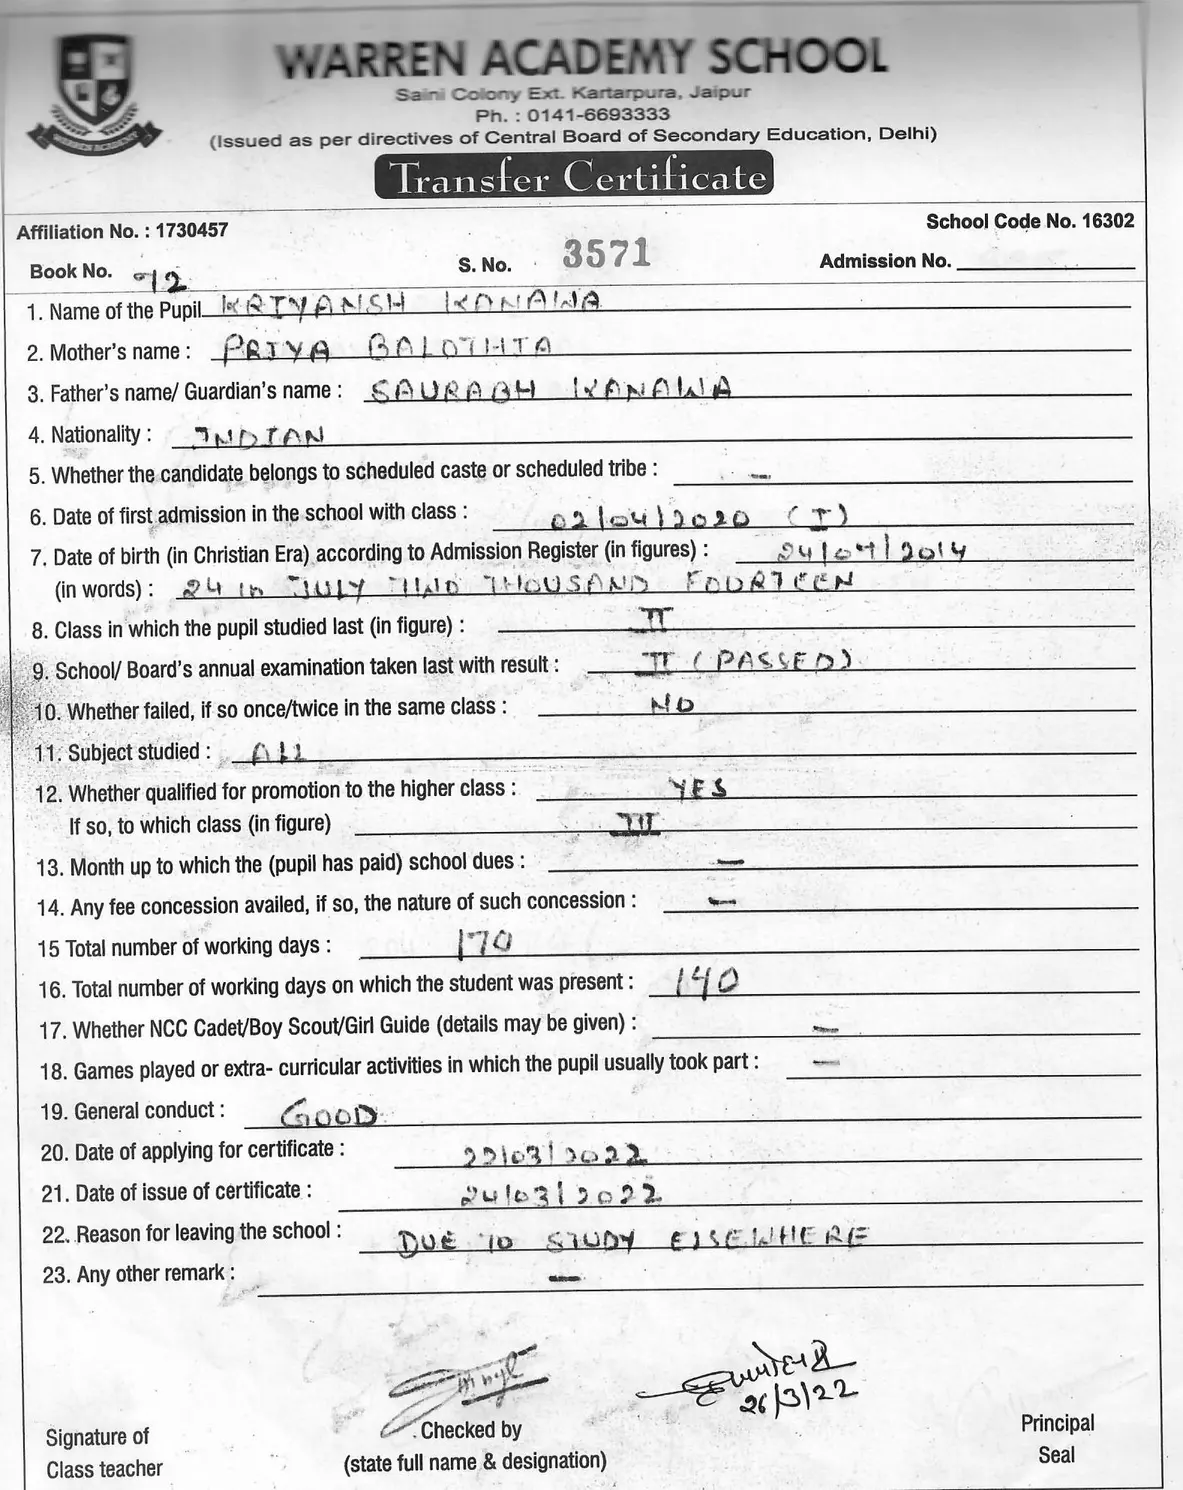 WARREN ACADEMY SCHOOL
Saini Colony Ext. Kartarpura, Jaipur
Ph. : 0141-6693333
(Issued as per directives of Central Board of Secondary Education, Delhi)
WARREN ACADEMY
Transfer Certificate
Affiliation No. : 1730457 School Code No. 16302
Book No. 72 S. No. 3571 Admission No.
1. Name of the Pupil KRIYANSH KANAWA
2. Mother's name : PRIYA BALOTHIA
3. Father's name/ Guardian's name : SAURABH KANAWA
4. Nationality : INDIAN
5. Whether the candidate belongs to scheduled caste or scheduled tribe : –
6. Date of first admission in the school with class : 02/04/2020 (I)
7. Date of birth (in Christian Era) according to Admission Register (in figures) : 24/07/2014
(in words) : 24 th JULY TWO THOUSAND FOURTEEN
8. Class in which the pupil studied last (in figure) : II
9. School/ Board's annual examination taken last with result : II (PASSED)
10. Whether failed, if so once/twice in the same class : NO
11. Subject studied : ALL
12. Whether qualified for promotion to the higher class : YES
If so, to which class (in figure) III
13. Month up to which the (pupil has paid) school dues : –
14. Any fee concession availed, if so, the nature of such concession : –
15 Total number of working days : 170
16. Total number of working days on which the student was present : 140
17. Whether NCC Cadet/Boy Scout/Girl Guide (details may be given) : –
18. Games played or extra- curricular activities in which the pupil usually took part : –
19. General conduct : GOOD
20. Date of applying for certificate : 22/03/2022
21. Date of issue of certificate : 24/03/2022
22. Reason for leaving the school : DUE TO STUDY ELSEWHERE
23. Any other remark : –
26/3/22
Signature of Checked by Principal
Class teacher (state full name & designation) Seal